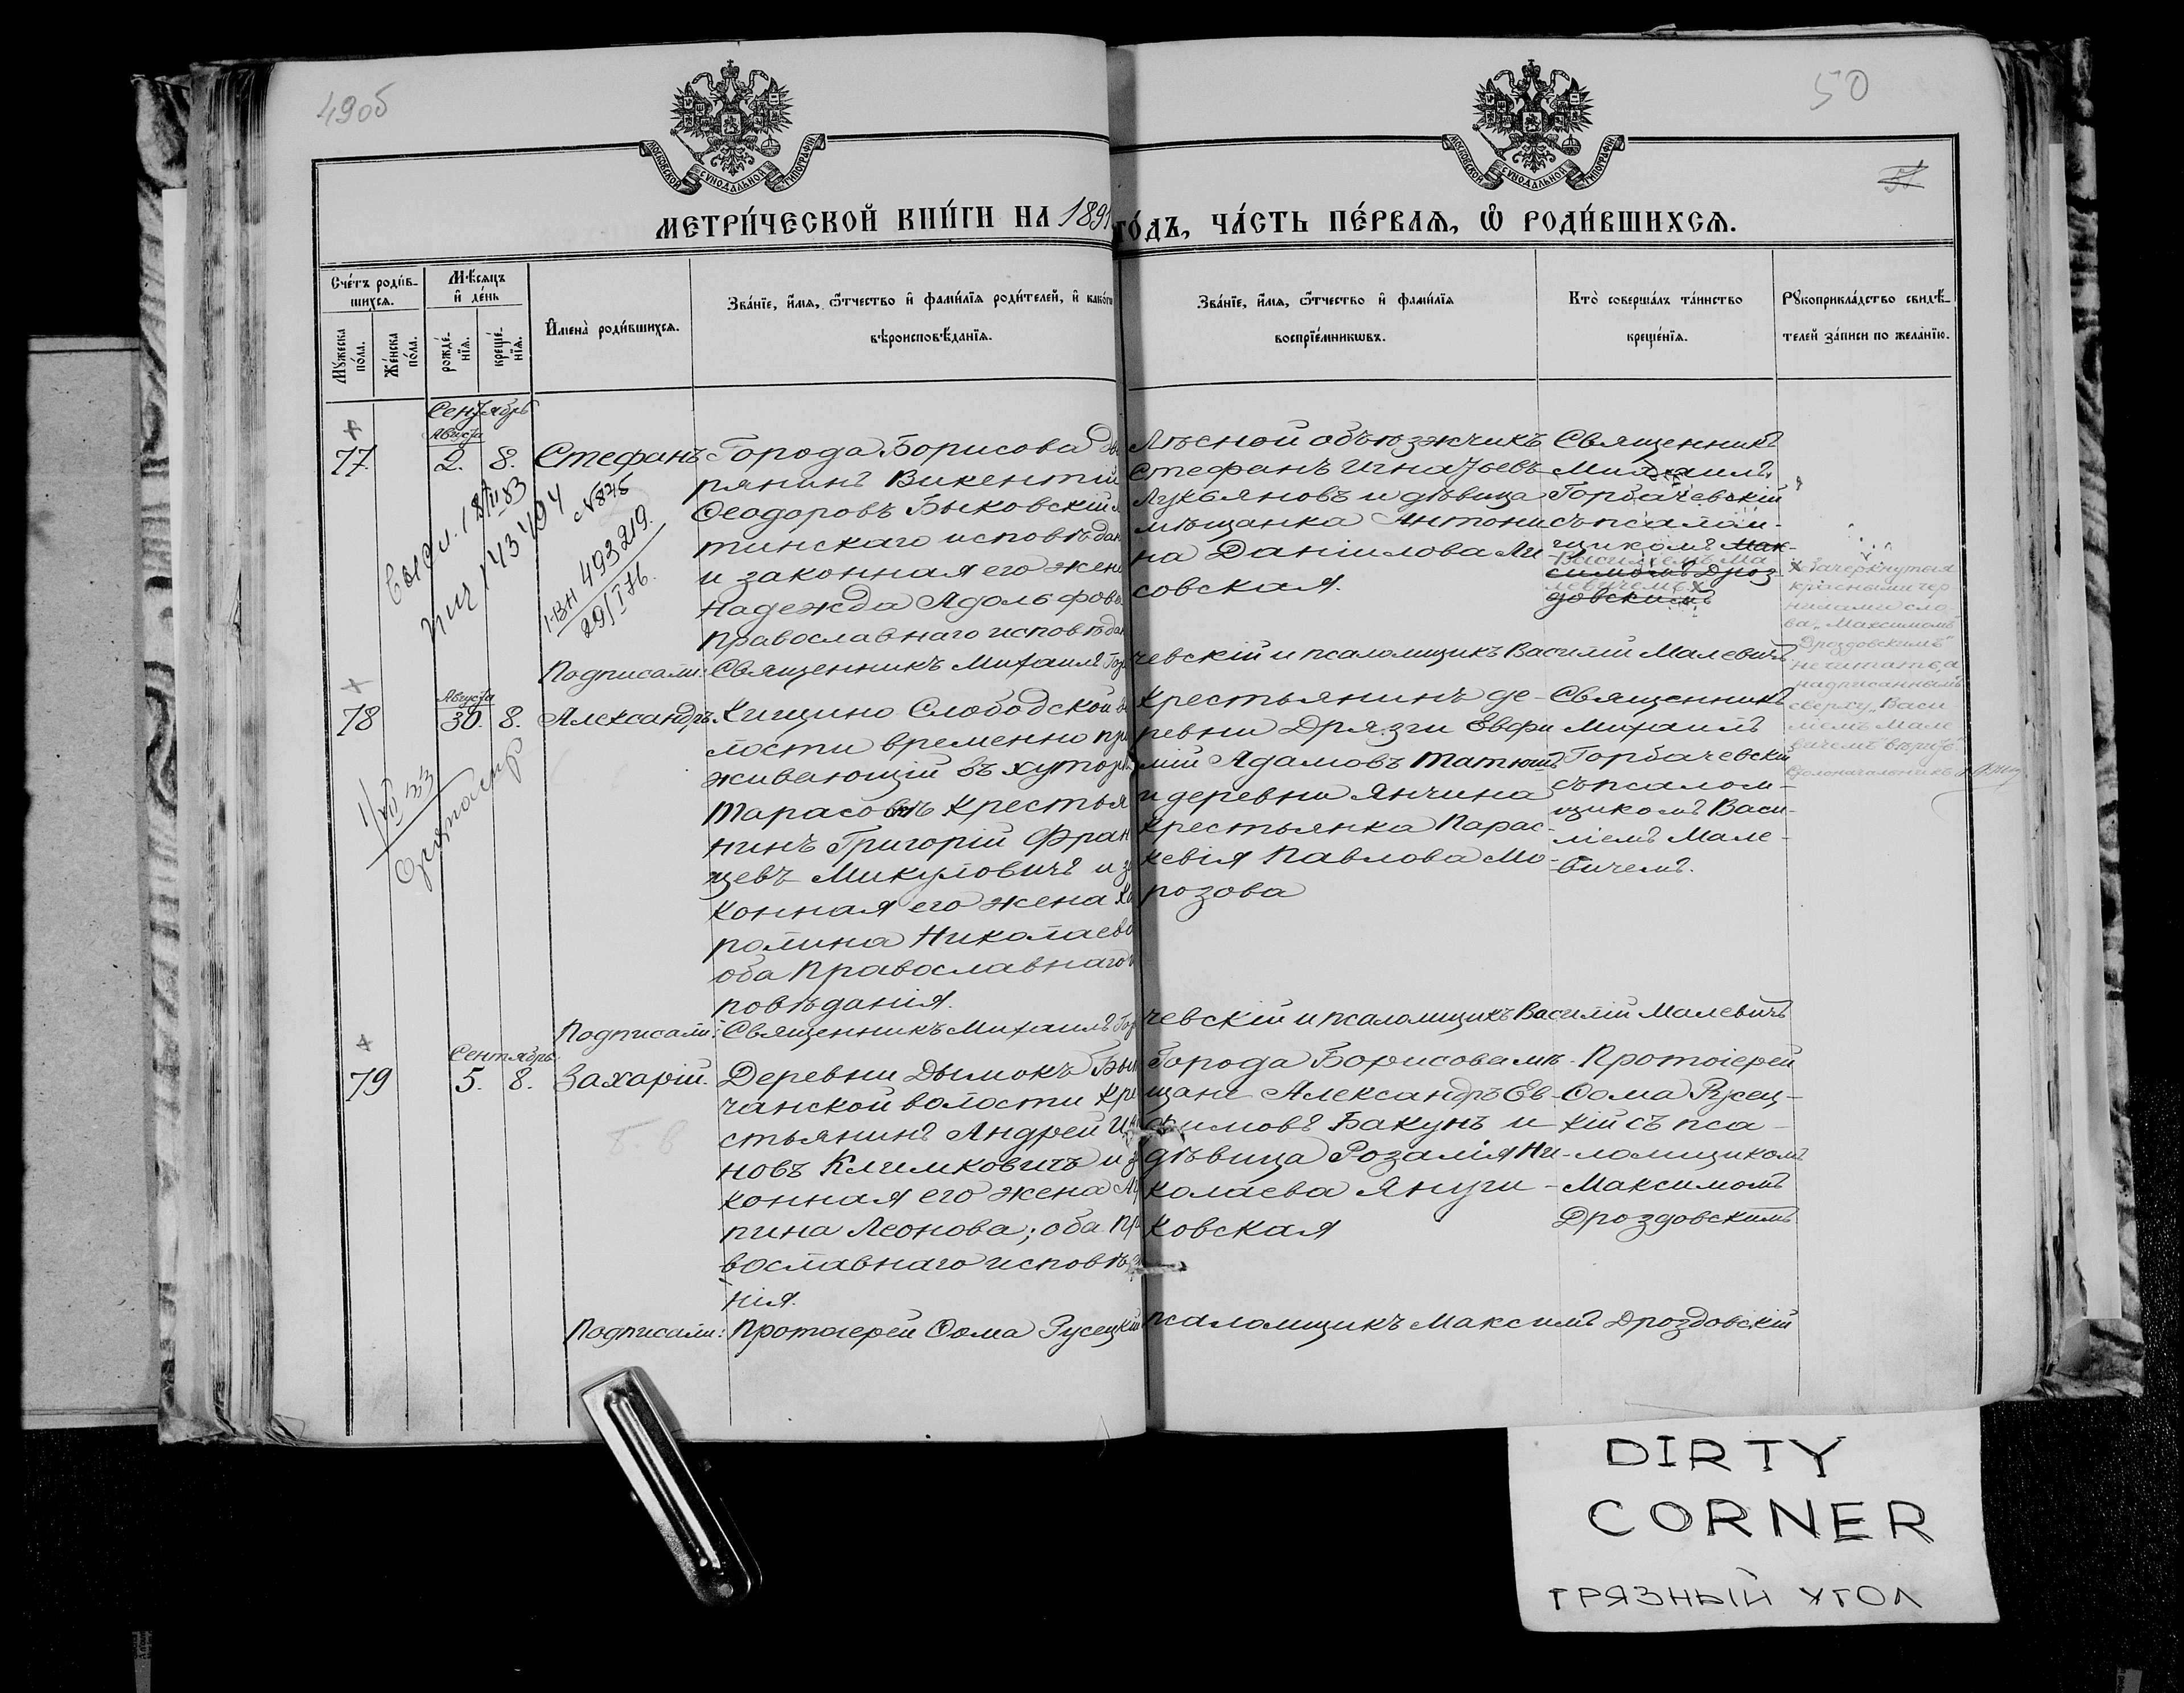 49об
50
51
МОСКОВСКОЙ СѴНОДАЛЬНОЙ ТИПОГРАФІИ
МОСКОВСКОЙ СѴНОДАЛЬНОЙ ТИПОГРАФІИ
МЕТРИ́ЧЕСКОЙ КНИ́ГИ НА 1891
ГО́ДЪ, ЧА́СТЬ ПЕ́РВАѦ, Ѡ҆ РОДИ́ВШИХСѦ.
Сче́тъ роди́в-
шихсѧ.
Мꙋ́жеска по́ла.
Же́нска по́ла.
Мѣ́сѧцъ
и҆ де́нь
рожде́-
нїѧ.
креще́-
нїѧ.
И҆мена̀ роди́вшихсѧ.
Зва́нїе, и҆́мѧ, ѻ҆́тчество и҆ фами́лїѧ роди́телей, и҆ како́гѡ
вѣроисповѣ́данїѧ.
Зва́нїе, и҆́мѧ, ѻ҆́тчество и҆ фами́лїѧ
воспрїе́мникѡвъ.
Кто̀ соверша́лъ та́инство
креще́нїѧ.
Рꙋкоприкла́дство свидѣ́-
телей за́писи по жела́нїю.
Сентябрь
Августа
77. 2. 8. Стефанъ
Города Борисова дво
рянинъ Викентій
Ѳеодоровъ Быковскій
тинскаго исповѣдан
и законная его жена
Надежда Адольфова
православнаго исповѣдан
Лѣсной объѣзжчикъ
Стефанъ Игнатьевъ
Лукьяновъ и дѣвица
мѣщанка Антони
на Даніилова Ли
совская.
Священникъ
Михаилъ
Горбачевскій
съ псалом-
щикомъ Мак-
Василіемъ Ма
симомъ Дроз-
левичемъ х
довскимъ
х Зачеркнутыя
красными чер
нилами сло-
ва „Максимомъ
Дроздовскимъ"
не читать, а
надписаннымъ
сверху „Васи
ліемъ Мале
вичемъ" вѣрить
Столоначальникъ
№876
143494
493219.
29/I 76.
Подписали: Священникъ Михаилъ Гор
чевскій и псаломщикъ Василій Малевичъ
Августа
78 30. 8. Александръ.
Кищино Слободской во
лости временно про
живающій въ хуторѣ
Тарасовѣ крестья
нинъ Григорій Фран
цевъ Микуловичъ и за
конная его жена Ка
ролина Николаева
оба Православнаго
повѣданія.
Крестьянинъ де-
ревни Дрязги Евфи
мій Адамовъ Татюй
и деревни Янчина
крестьянка Парас-
кевія Павлова Мо-
розова
Священникъ
Михаилъ
Горбачевскій
съ псалом-
щикомъ Васи-
ліемъ Мале-
вичемъ.
1/VII 33
Подписали: Священникъ Михаилъ Гор
чевскій и псаломщикъ Василій Малевичъ
Сентябрь
79 5. 8. Захарій.
Деревни Дымокъ Бы
чанской волости кре
стьянинъ Андрей И
новъ Климковичъ и за
конная его жена Аг
пина Леонова; оба пр
вославнаго исповѣд
нія.
Города Борисова мѣ-
щане Александръ Ев-
фимовъ Бакунъ и
дѣвица Розалія Ни-
колаева Януги-
ковская
Протоіерей
Ѳома Русец-
кій съ пса-
ломщикомъ
Максимомъ
Дроздовскимъ
Подписали: Протоіерей Ѳома Русецкій
псаломщикъ Максимъ Дроздовскій
DIRTY
CORNER
ГРЯЗНЫЙ УГОЛ